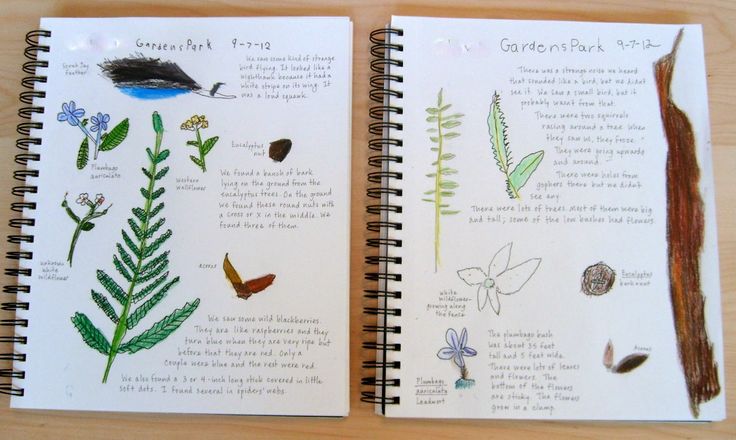 GardensPark 9-7-12
Scrub Jay
feather
We saw some kind of strange
bird flying. It looked like a
nighthawk because it had a
white stripe on its wing. It
was a loud squawk.
Plumbago
auriculata
Western
wallflower
Eucalyptus
nut
We found a bunch of bark
lying on the ground from the
eucalyptus trees. On the ground
we found these round nuts with
a cross or X in the middle. We
found three of them.
unknown
white
wildflower
acorns
We saw some wild blackberries.
They are like raspberries and they
turn blue when they are very ripe but
before that they are red. Only a
couple were blue and the rest were red.
We also found a 3 or 4-inch long stick covered in little
soft dots. I found several in spiders' webs.
GardensPark 9-7-12
There was a strange noise we heard
that sounded like a bird, but we didn't
see it. We saw a small bird, but it
probably wasn't from that.
There were two squirrels
racing around a tree. When
they saw us, they froze.
They were going upwards
and around.
There were holes from
gophers there but we didn't
see any.
There were lots of trees. Most of them were big
and tall; some of the low bushes had flowers.
white
wildflower-
growing along
the fence
Eucalyptus
bark & nut
Plumbago
auriculata
Leadwort
The plumbago bush
was about 3.5 feet
tall and 5 feet wide.
There were lots of leaves
and flowers. The
bottom of the flowers
are sticky. The flowers
grow in a clump.
Acorns